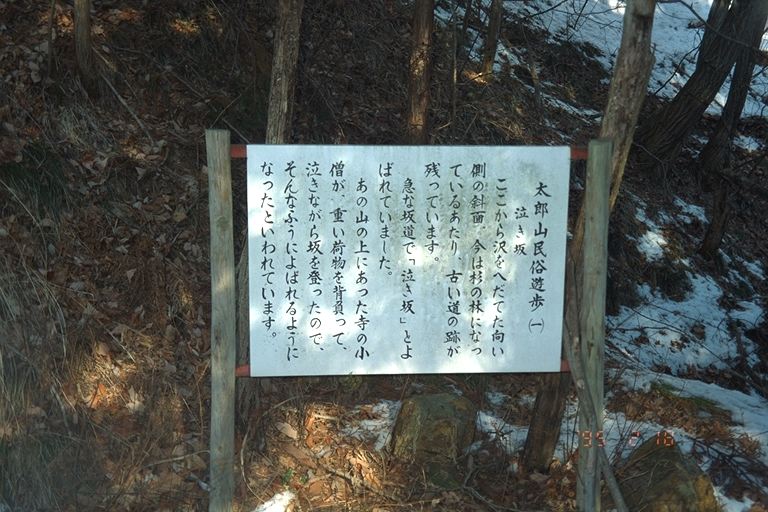 太郎山民俗遊歩㈠
泣き坂
ここから沢をへだてた向い
側の斜面、今は杉の林になっ
ているあたり、古い道の跡が
残っています。
急な坂道で「泣き坂」とよ
ばれていました。
あの山の上にあった寺の小
僧が、重い荷物を背負って、
泣きながら坂を登ったので、
そんなふうによばれるように
なったといわれています。